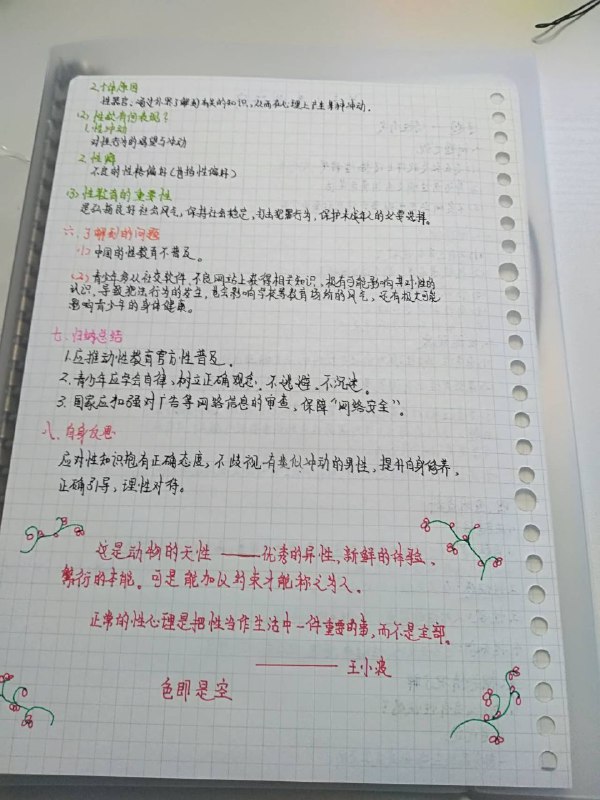 2.个体原因
性器官、通过外界了解到有关的知识,从而在心理上产生某种冲动.
(2) 性欲有何表现?
1.性冲动
对性行为的渴望与冲动
2.性癖
不良的性格偏好(有指性偏好)
(3) 性教育的重要性
是弘扬良好社会风气,保持社会稳定,打击犯罪行为,保护未成年人的必要选择。
六、了解到的问题
(1) 中国的性教育不普及。
(2) 青少年易从社交软件、不良网站上获得相关知识,极有可能影响其对性的
认识,导致犯法行为的发生,也会影响学校等教育场所的风气,还有极大可能
影响青少年的身体健康。
七、归纳总结
1.应推动性教育官方性普及。
2.青少年应学会自律,树立正确观念,不逃避、不沉迷。
3.国家应加强对广告等网络信息的审查,保障“网络安全”。
八、自身反思
应对性知识抱有正确态度,不歧视有类似冲动的男性,提升自身修养,
正确引导,理性对待。
这是动物的天性——优秀的异性,新鲜的体验、
繁衍的本能。可是能加以约束才能称之为人。
正常的性心理是把性当作生活中一件重要的事,而不是全部。
——王小波
色即是空